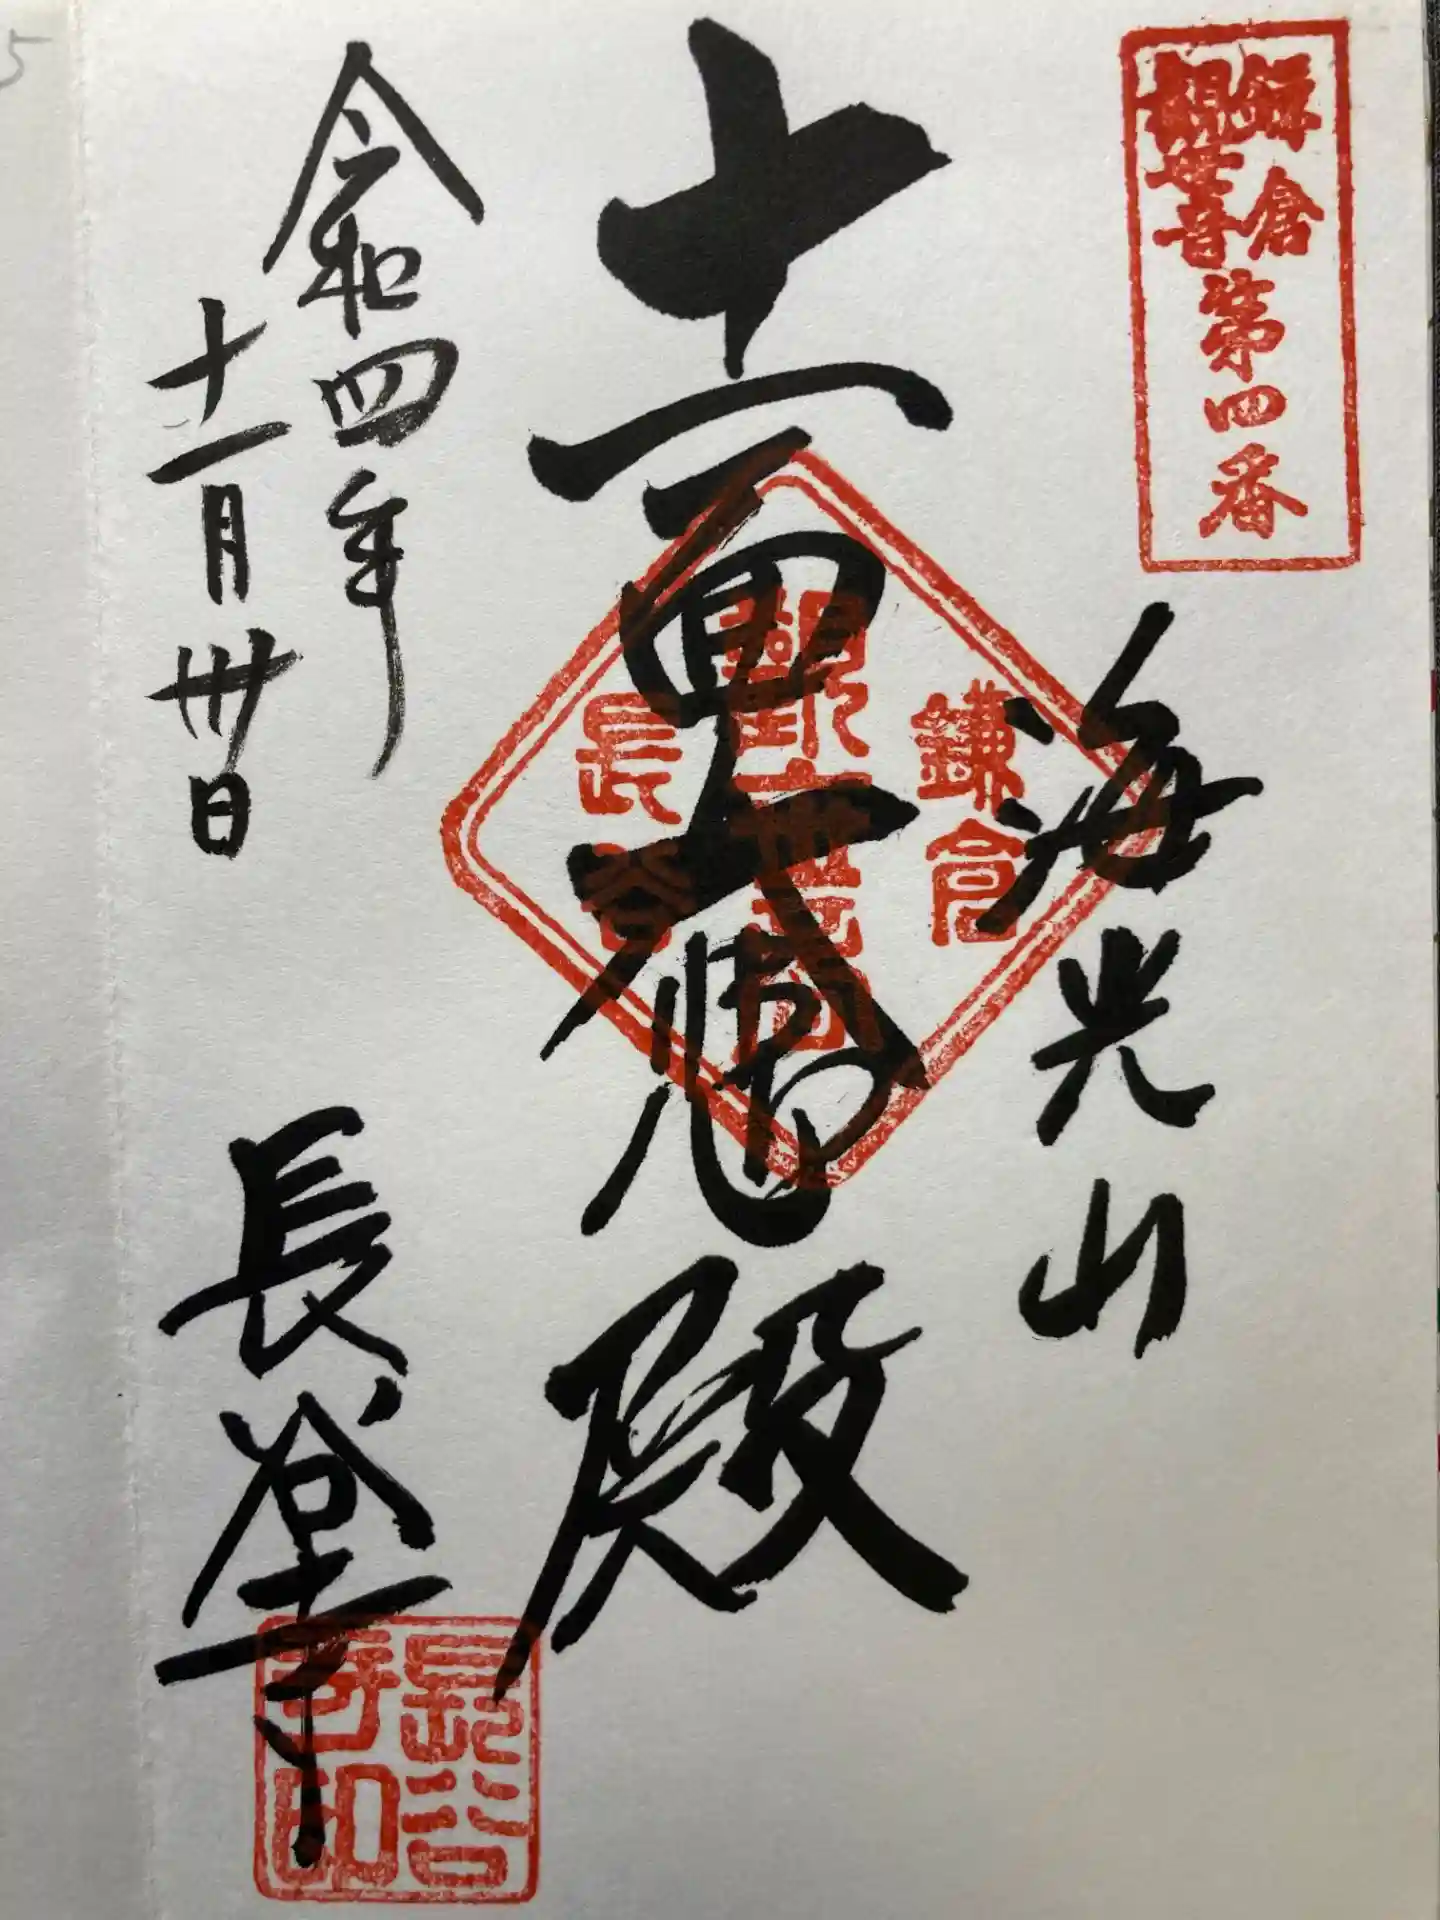 鎌倉
観世音
第四番
海光山
十一面大悲殿
鎌倉
長谷
令和四年
十一月卅日
長谷寺
長谷
寺印